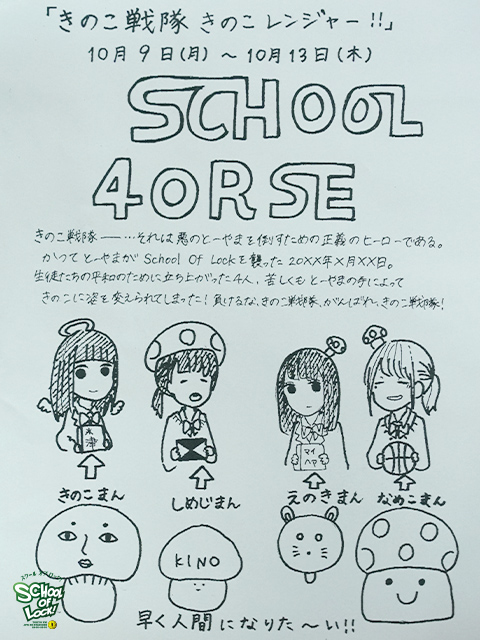 「きのこ戦隊 きのこレンジャー!!」
10月9日(月) ~10月13日(木)
SCHOOL
4ORSE
きのこ戦隊――…それは悪のとーやまを倒すための正義のヒーローである。
かつてとーやまがSchool Of Lockを襲った20XX年X月XX日。
生徒たちの平和のために立ち上がった4人、苦しくもとーやまの手によって
きのこに姿を変えられてしまった!負けるな、きのこ戦隊、がんばれ、きのこ戦隊!
米津
マイヘア
きのこまん
しめじまん
えのきまん
なめこまん
KINO
スクールオブロック!
SCHOOL OF LOCK!
早く人間になりた~い!!